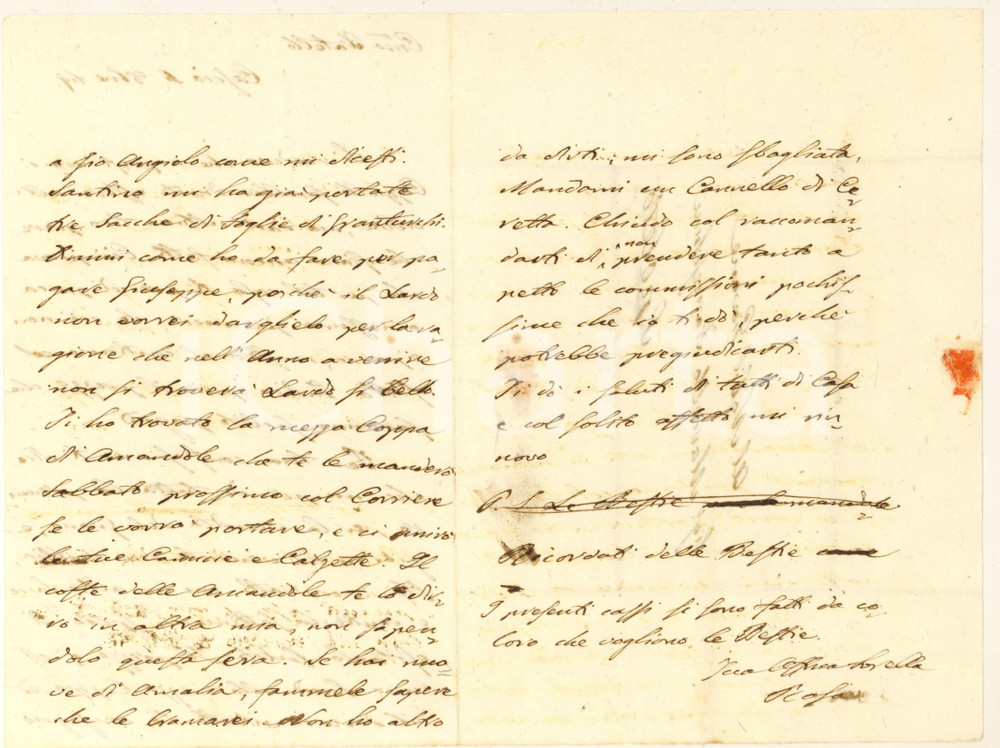 a Gio Angiolo come mi dicesti.
Santino mi ha già portate
tre Sacche di foglie di Granturchi.
Dimmi come ho da fare per pa-
gare Giuseppe, poichè il Lardo
non vorrei darglielo per la ra-
gione che nell' Anno a venire
non si troverà Lardo si bello.
Ti ho trovato la mezza Coppa
di Amandole che te le manderò
Sabbato prossimo col Corriere
se le vorrà portare, e ci unirò
le tue Camicie e Calzette. Il
costo delle Amandole te lo di-
rò in altra mia, non sapen-
dolo questa sera. Se hai nuo-
ve di Amalia, fammele sapere
che le bramarei. Non ho altro
da dirti; mi sono sbagliata,
Mandami un Cannello di Ce-
retta. Chiudo col raccoman-
darti di non prendere tanto a
petto le commissioni pochis-
sime che io ti dò, perchè
potrebbe pregiudicarti.
Ti dò i saluti di tutti di Casa
e col solito affetto mi rin-
novo
P. S. Le Bestie
Ricordati delle Bestie
I presenti cassi si sono fatti da co-
loro che vogliono le Bestie.
Tua Affma Sorella
Rosa